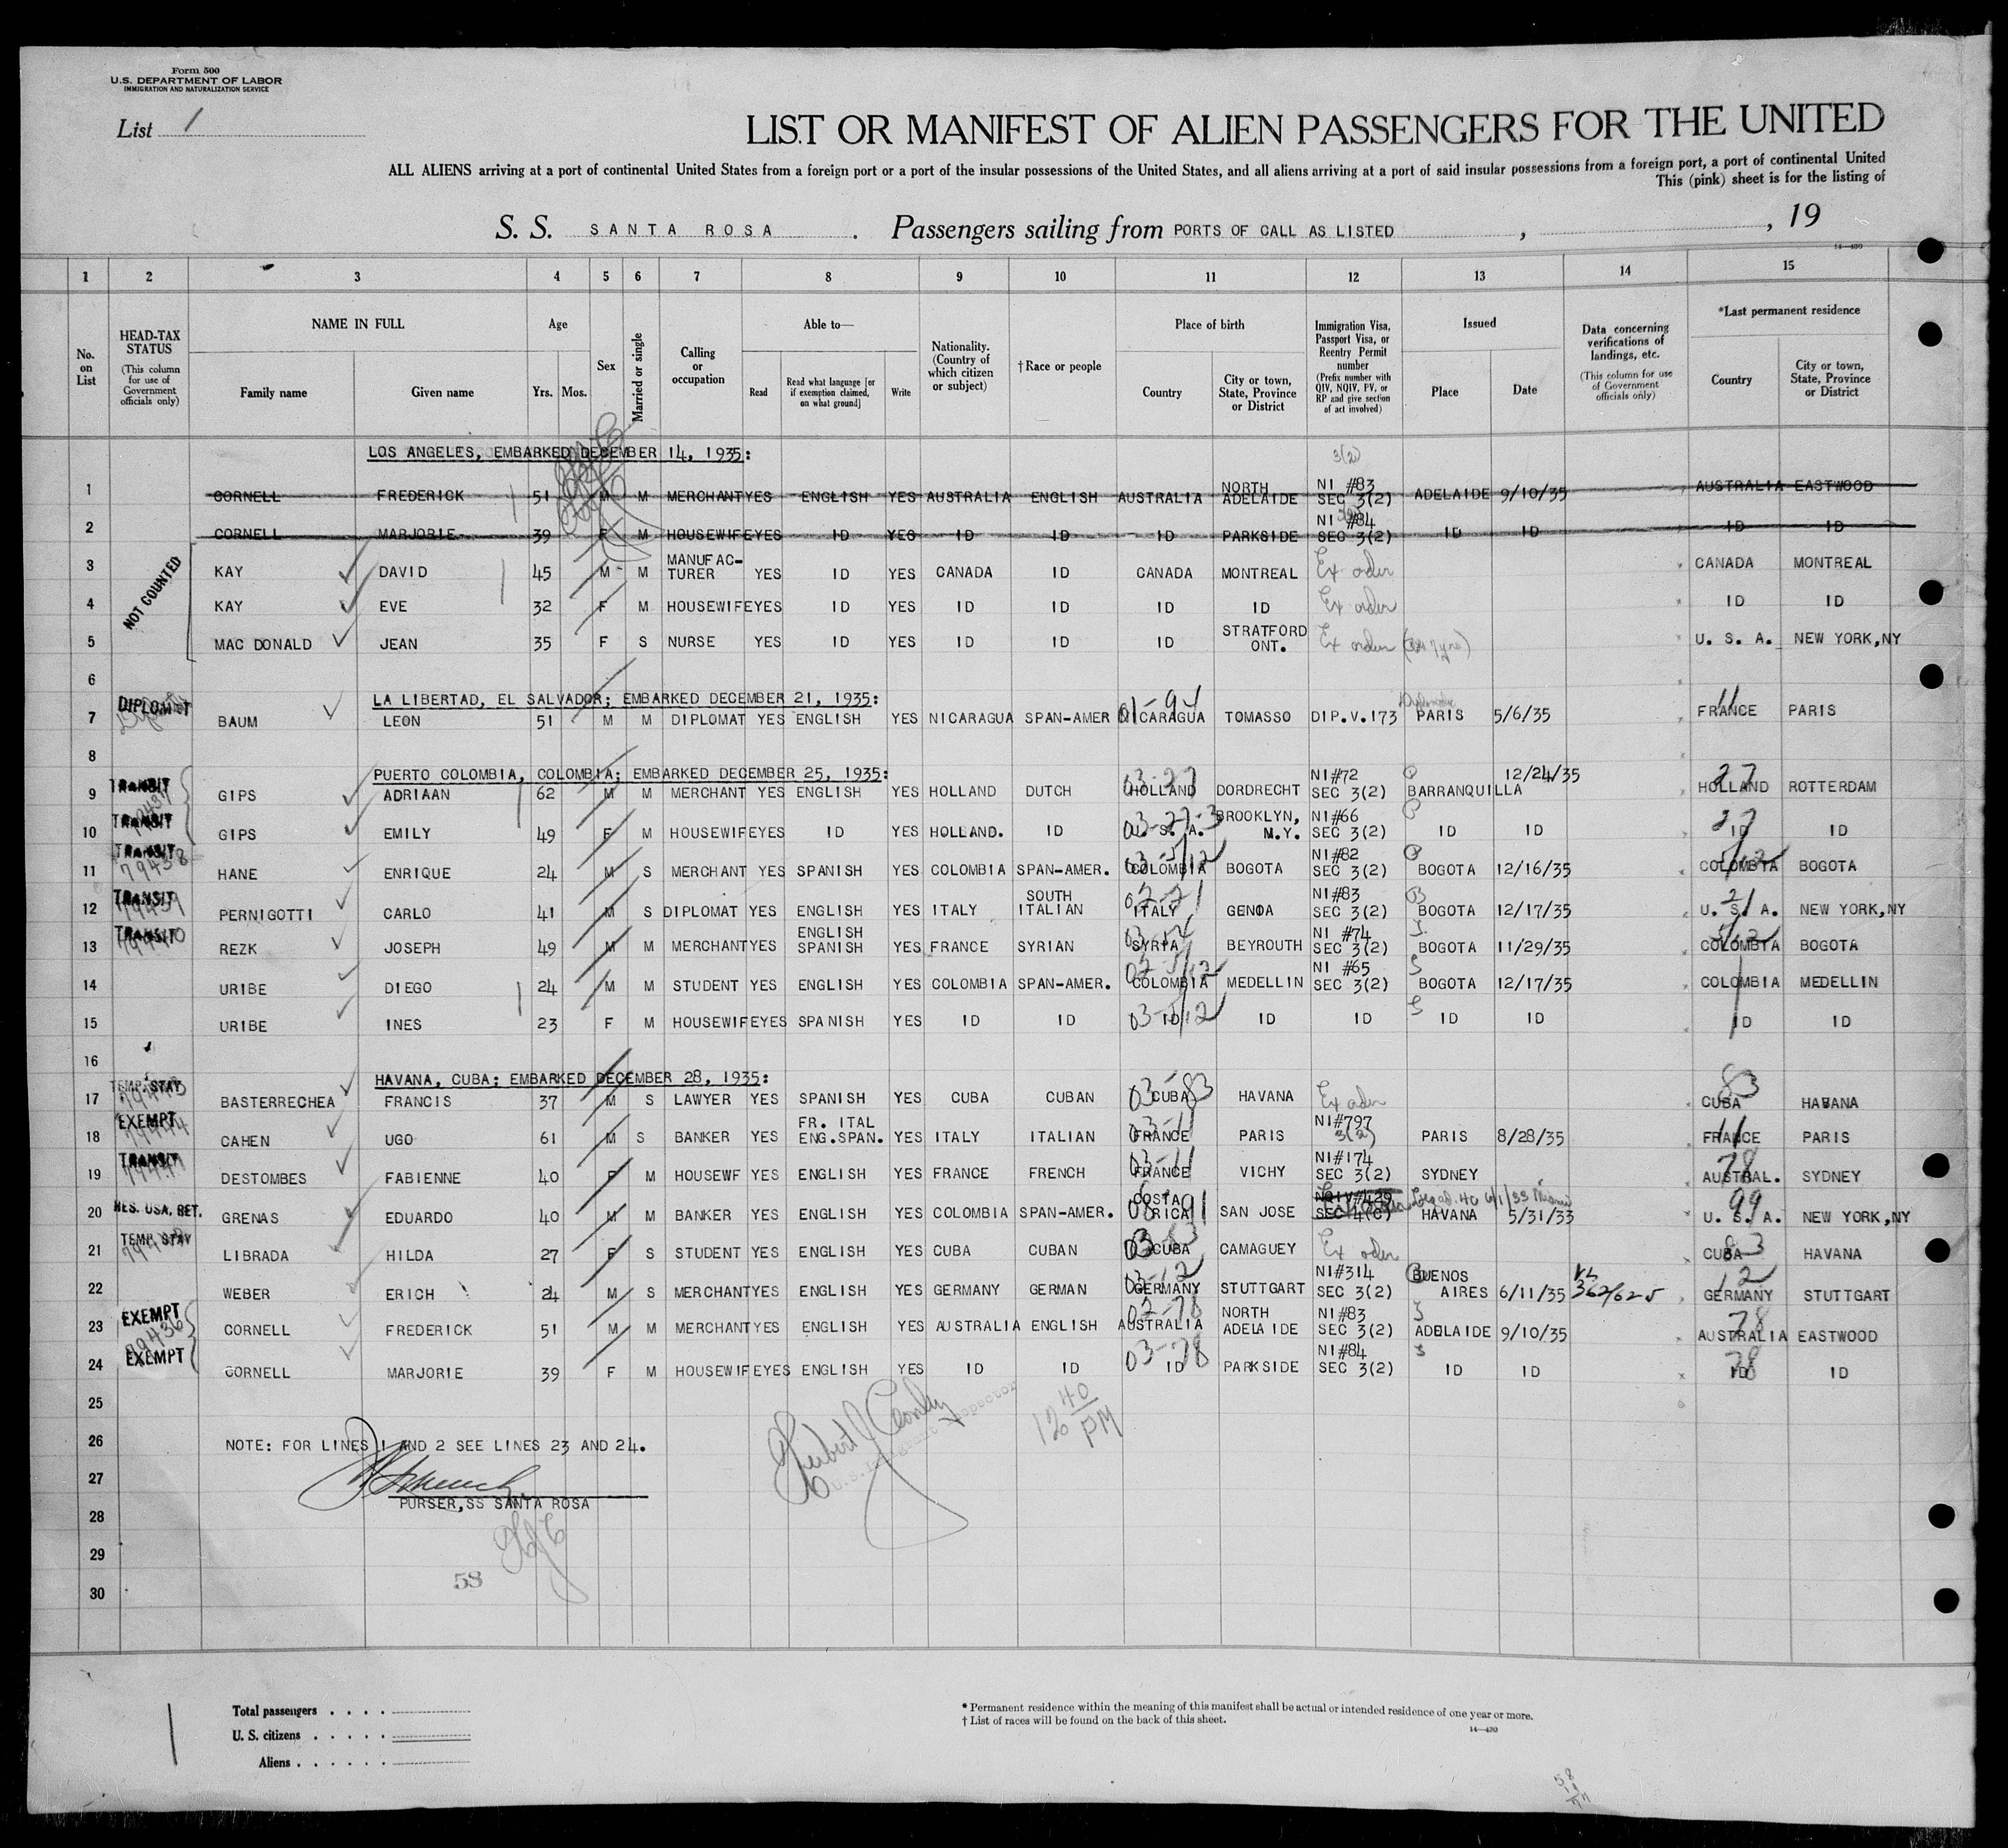 Form 500
U.S. DEPARTMENT OF LABOR
IMMIGRATION AND NATURALIZATION SERVICE
List 1
LIST OR MANIFEST OF ALIEN PASSENGERS FOR THE UNITED
ALL ALIENS arriving at a port of continental United States from a foreign port or a port of the insular possessions of the United States, and all aliens arriving at a port of said insular possessions from a foreign port, a port of continental United
This (pink) sheet is for the listing of
S. S. SANTA ROSA. Passengers sailing from PORTS OF CALL AS LISTED, , 19
14—430
1 2 3 4 5 6 7 8 9 10 11 12 13 14 15
No. on List
HEAD-TAX STATUS (This column for use of Government officials only)
NAME IN FULL
Family name Given name
Age
Yrs. Mos.
Sex
Married or single
Calling or occupation
Able to—
Read Read what language [or if exemption claimed, on what ground] Write
Nationality. (Country of which citizen or subject)
†Race or people
Place of birth
Country City or town, State, Province or District
Immigration Visa, Passport Visa, or Reentry Permit number (Prefix number with QIV, NQIV, PV, or RP and give section of act involved)
Issued
Place Date
Data concerning verifications of landings, etc. (This column for use of Government officials only)
*Last permanent residence
Country City or town, State, Province or District
LOS ANGELES, EMBARKED DECEMBER 14, 1935:
3(2)
1 CORNELL FREDERICK 51 M M MERCHANT YES ENGLISH YES AUSTRALIA ENGLISH AUSTRALIA NORTH ADELAIDE NI #83 SEC 3(2) ADELAIDE 9/10/35 AUSTRALIA EASTWOOD
2 CORNELL MARJORIE 39 F M HOUSEWIFE YES ID YES ID ID ID PARKSIDE NI #84 SEC 3(2) ID ID ID ID
NOT COUNTED
3 KAY DAVID 45 M M MANUFAC-TURER YES ID YES CANADA ID CANADA MONTREAL Ex order CANADA MONTREAL
4 KAY EVE 32 F M HOUSEWIFE YES ID YES ID ID ID ID Ex order ID ID
5 MAC DONALD JEAN 35 F S NURSE YES ID YES ID ID ID STRATFORD ONT. Ex order U. S. A. NEW YORK,NY
6
LA LIBERTAD, EL SALVADOR; EMBARKED DECEMBER 21, 1935:
7 DIPLOMAT BAUM LEON 51 M M DIPLOMAT YES ENGLISH YES NICARAGUA SPAN-AMER 01-94 NICARAGUA TOMASSO DIP.V.173 PARIS 5/6/35 11 FRANCE PARIS
8
PUERTO COLOMBIA, COLOMBIA; EMBARKED DECEMBER 25, 1935:
9 TRANSIT GIPS ADRIAAN 62 M M MERCHANT YES ENGLISH YES HOLLAND DUTCH 03-27 HOLLAND DORDRECHT NI#72 SEC 3(2) BARRANQUILLA 12/24/35 27 HOLLAND ROTTERDAM
10 TRANSIT GIPS EMILY 49 F M HOUSEWIFE YES ID YES HOLLAND. ID 03-27-3 U. S. A. BROOKLYN, N.Y. NI#66 SEC 3(2) ID ID 27 ID ID
11 TRANSIT 79438 HANE ENRIQUE 24 M S MERCHANT YES SPANISH YES COLOMBIA SPAN-AMER. COLOMBIA BOGOTA NI#82 SEC 3(2) BOGOTA 12/16/35 COLOMBIA BOGOTA
12 TRANSIT 79439 PERNIGOTTI CARLO 41 M S DIPLOMAT YES ENGLISH YES ITALY SOUTH ITALIAN 02-21 ITALY GENOA NI#83 SEC 3(2) BOGOTA 12/17/35 21 U. S. A. NEW YORK,NY
13 TRANSIT 79440 REZK JOSEPH 49 M M MERCHANT YES ENGLISH SPANISH YES FRANCE SYRIAN SYRIA BEYROUTH NI #74 SEC 3(2) BOGOTA 11/29/35 COLOMBIA BOGOTA
14 URIBE DIEGO 24 M M STUDENT YES ENGLISH YES COLOMBIA SPAN-AMER. COLOMBIA MEDELLIN NI #65 SEC 3(2) BOGOTA 12/17/35 COLOMBIA MEDELLIN
15 URIBE INES 23 F M HOUSEWIFE YES SPANISH YES ID ID ID ID ID ID ID ID ID
16
HAVANA, CUBA; EMBARKED DECEMBER 28, 1935:
17 TEMP. STAY BASTERRECHEA FRANCIS 37 M S LAWYER YES SPANISH YES CUBA CUBAN 03-83 CUBA HAVANA Ex order 83 CUBA HABANA
18 EXEMPT 79444 CAHEN UGO 61 M S BANKER YES FR. ITAL ENG.SPAN. YES ITALY ITALIAN 03-11 FRANCE PARIS NI#797 3(2) PARIS 8/28/35 11 FRANCE PARIS
19 TRANSIT DESTOMBES FABIENNE 40 F M HOUSEWF YES ENGLISH YES FRANCE FRENCH 03-11 FRANCE VICHY NI#174 SEC 3(2) SYDNEY 78 AUSTRAL. SYDNEY
20 RES. USA, RET. GRENAS EDUARDO 40 M M BANKER YES ENGLISH YES COLOMBIA SPAN-AMER. COSTA RICA SAN JOSE NQIV#429 SEC 4(C) HAVANA 5/31/33 99 U. S. A. NEW YORK,NY
21 TEMP. STAY LIBRADA HILDA 27 F S STUDENT YES ENGLISH YES CUBA CUBAN 03-83 CUBA CAMAGUEY Ex order 83 CUBA HAVANA
22 WEBER ERICH 24 M S MERCHANT YES ENGLISH YES GERMANY GERMAN 03-12 GERMANY STUTTGART NI#314 SEC 3(2) BUENOS AIRES 6/11/35 362/625 12 GERMANY STUTTGART
23 EXEMPT 79436 CORNELL FREDERICK 51 M M MERCHANT YES ENGLISH YES AUSTRALIA ENGLISH 02-78 AUSTRALIA NORTH ADELAIDE NI#83 SEC 3(2) ADELAIDE 9/10/35 78 AUSTRALIA EASTWOOD
24 EXEMPT CORNELL MARJORIE 39 F M HOUSEWIFE YES ENGLISH YES ID ID 03-78 ID PARKSIDE NI#84 SEC 3(2) ID ID 78 ID ID
25
26 NOTE: FOR LINES 1 AND 2 SEE LINES 23 AND 24.
12 40 PM
27
PURSER,SS SANTA ROSA
28
29
58
30
Total passengers . . . .
U. S. citizens . . . . .
Aliens . . . . . .
* Permanent residence within the meaning of this manifest shall be actual or intended residence of one year or more.
† List of races will be found on the back of this sheet.
14—430
58
19
77